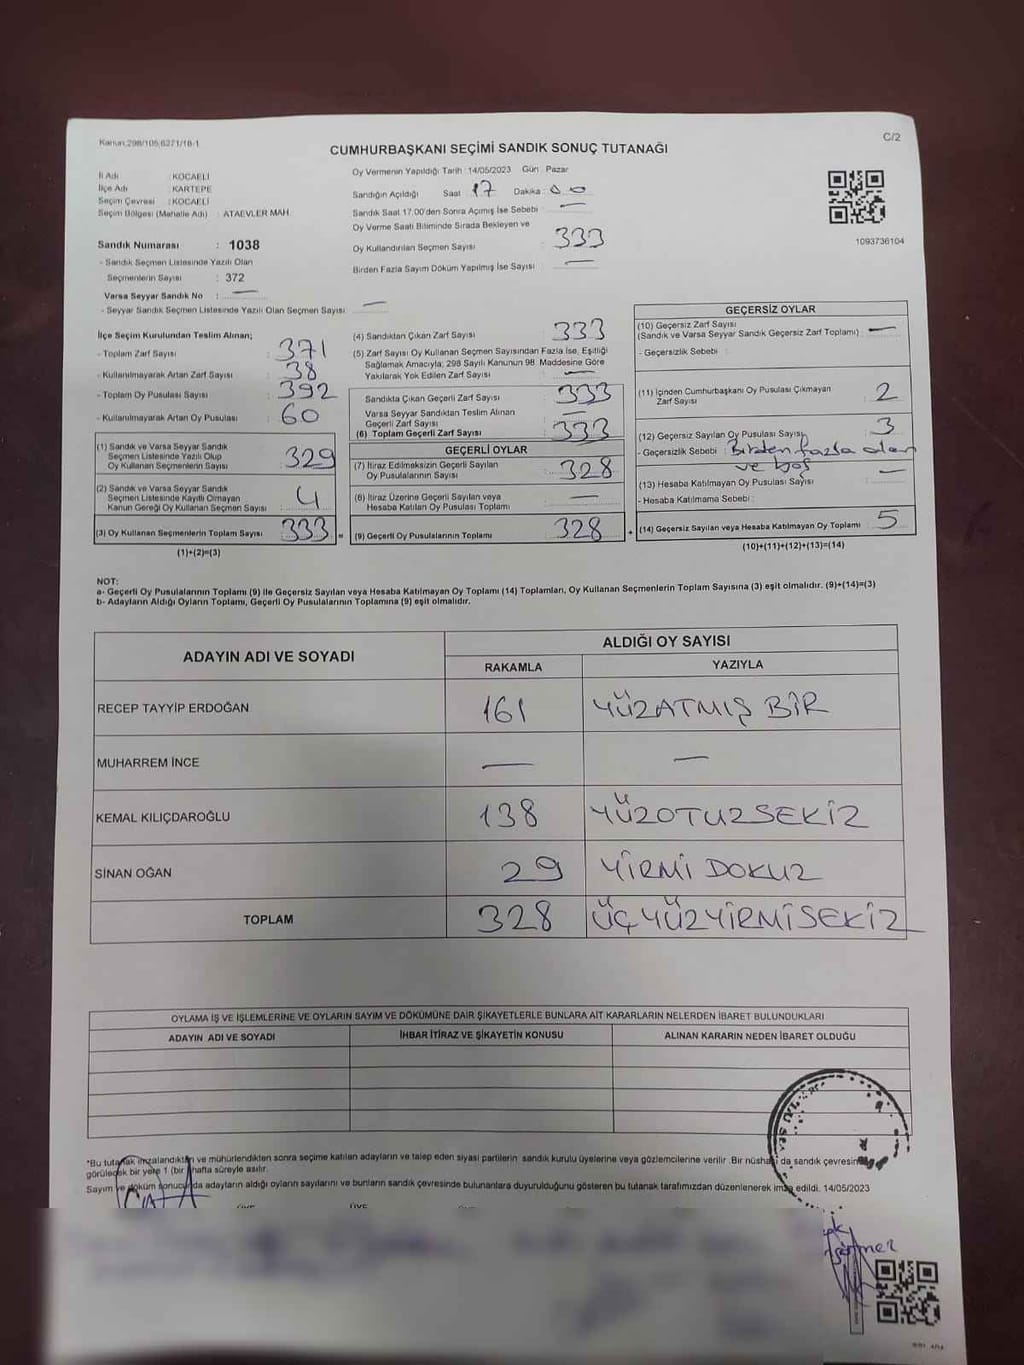 Kanun,298/105,6271/18-1
C/2
CUMHURBAŞKANI SEÇİMİ SANDIK SONUÇ TUTANAĞI
İl Adı : KOCAELİ
İlçe Adı : KARTEPE
Seçim Çevresi : KOCAELİ
Seçim Bölgesi (Mahalle Adı) : ATAEVLER MAH.
Sandık Numarası : 1038
- Sandık Seçmen Listesinde Yazılı Olan
Seçmenlerin Sayısı : 372
Varsa Seyyar Sandık No : —
- Seyyar Sandık Seçmen Listesinde Yazılı Olan Seçmen Sayısı : —
Oy Vermenin Yapıldığı Tarih :14/05/2023 Gün : Pazar
Sandığın Açıldığı Saat : 17 Dakika : 00
Sandık Saat 17.00'den Sonra Açımış İse Sebebi : —
Oy Verme Saati Bitiminde Sırada Bekleyen ve
Oy Kullandırılan Seçmen Sayısı : 333
Birden Fazla Sayım Döküm Yapılmış İse Sayısı : —
1093736104
İlçe Seçim Kurulundan Teslim Alınan;
- Toplam Zarf Sayısı : 371
- Kullanılmayarak Artan Zarf Sayısı : 38
- Toplam Oy Pusulası Sayısı : 392
- Kullanılmayarak Artan Oy Pusulası : 60
(1) Sandık ve Varsa Seyyar Sandık
Seçmen Listesinde Yazılı Olup
Oy Kullanan Seçmenlerin Sayısı : 329
(2) Sandık ve Varsa Seyyar Sandık
Seçmen Listesinde Kayıtlı Olmayan
Kanun Gereği Oy Kullanan Seçmen Sayısı : 4
(3) Oy Kullanan Seçmenlerin Toplam Sayısı : 333 =
(1)+(2)=(3)
(4) Sandıktan Çıkan Zarf Sayısı : 333
(5) Zarf Sayısı Oy Kullanan Seçmen Sayısından Fazla İse, Eşitliği
Sağlamak Amacıyla, 298 Sayılı Kanunun 98. Maddesine Göre
Yakılarak Yok Edilen Zarf Sayısı : —
Sandıkta Çıkan Geçerli Zarf Sayısı : 333
Varsa Seyyar Sandıktan Teslim Alınan
Geçerli Zarf Sayısı : —
(6) Toplam Geçerli Zarf Sayısı : 333
GEÇERLİ OYLAR
(7) İtiraz Edilmeksizin Geçerli Sayılan
Oy Pusulalarının Sayısı : 328
(8) İtiraz Üzerine Geçerli Sayılan veya
Hesaba Katılan Oy Pusulası Toplamı : —
(9) Geçerli Oy Pusulalarının Toplamı : 328 +
GEÇERSİZ OYLAR
(10) Geçersiz Zarf Sayısı
(Sandık ve Varsa Seyyar Sandık Geçersiz Zarf Toplamı) : —
- Geçersizlik Sebebi :
(11) İçinden Cumhurbaşkanı Oy Pusulası Çıkmayan
Zarf Sayısı : 2
(12) Geçersiz Sayılan Oy Pusulası Sayısı : 3
- Geçersizlik Sebebi : Birden fazla olan
ve boş
(13) Hesaba Katılmayan Oy Pusulası Sayısı : —
- Hesaba Katılmama Sebebi :
(14) Geçersiz Sayılan veya Hesaba Katılmayan Oy Toplamı : 5
(10)+(11)+(12)+(13)=(14)
NOT:
a- Geçerli Oy Pusulalarının Toplamı (9) ile Geçersiz Sayılan veya Hesaba Katılmayan Oy Toplamı (14) Toplamları, Oy Kullanan Seçmenlerin Toplam Sayısına (3) eşit olmalıdır. (9)+(14)=(3)
b- Adayların Aldığı Oyların Toplamı, Geçerli Oy Pusulalarının Toplamına (9) eşit olmalıdır.
ADAYIN ADI VE SOYADI
ALDIĞI OY SAYISI
RAKAMLA YAZIYLA
RECEP TAYYİP ERDOĞAN 161 YÜZATMIŞ BİR
MUHARREM İNCE — —
KEMAL KILIÇDAROĞLU 138 YÜZOTUZSEKİZ
SİNAN OĞAN 29 YİRMİ DOKUZ
TOPLAM 328 ÜÇYÜZYİRMİSEKİZ
OYLAMA İŞ VE İŞLEMLERİNE VE OYLARIN SAYIM VE DÖKÜMÜNE DAİR ŞİKAYETLERLE BUNLARA AİT KARARLARIN NELERDEN İBARET BULUNDUKLARI
ADAYIN ADI VE SOYADI İHBAR İTİRAZ VE ŞİKAYETİN KONUSU ALINAN KARARIN NEDEN İBARET OLDUĞU
*Bu tutanak imzalandıktan ve mühürlendikten sonra seçime katılan adayların ve talep eden siyasi partilerin sandık kurulu üyelerine veya gözlemcilerine verilir .Bir nüshası da sandık çevresinin
görülecek bir yere 1 (bir) hafta süreyle asılır.
Sayım ve döküm sonucunda adayların aldığı oyların sayılarını ve bunların sandık çevresinde bulunanlara duyurulduğunu gösteren bu tutanak tarafımızdan düzenlenerek imza edildi. 14/05/2023